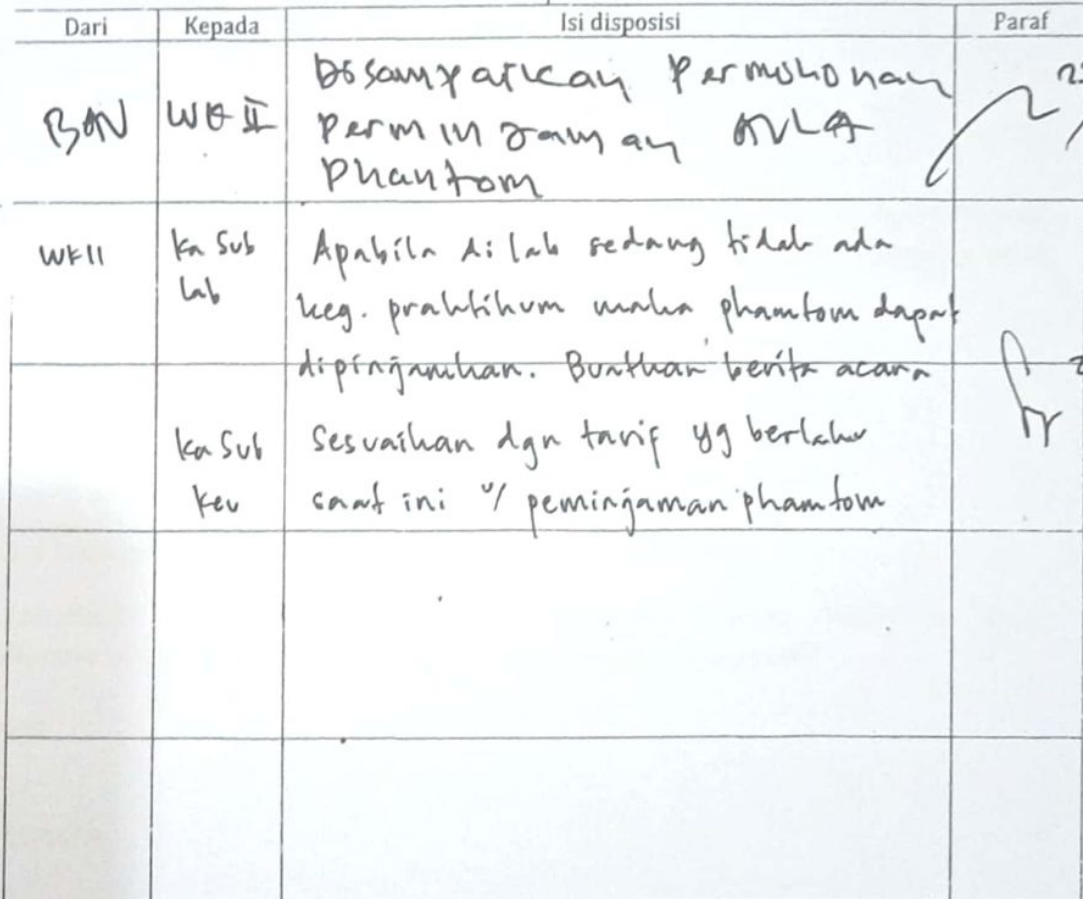 Dari Kepada Isi disposisi Paraf
Disampaikan Permohonan
BAN WK II Perminjaman AVLA
Phantom
WKII Ka Sub Apabila di lab sedang tidak ada
Lab keg. praktikum maka phamtom dapat
dipinjamkan. Buatkan berita acara
Ka Sub Sesuaikan dgn tarif yg berlaku
Keu saat ini u/ peminjaman phamtom